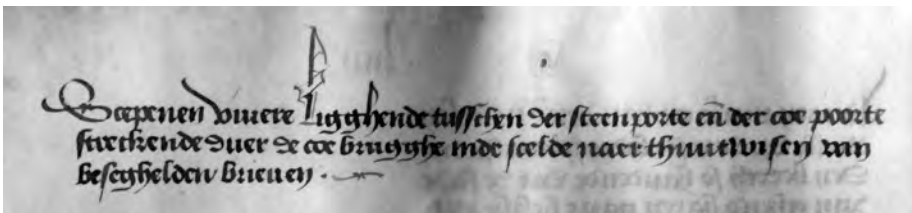 Scepenen vivere ligghende tusschen der steenporte en̄ der coe poorte
streckende duer de coe brugghe inde scelde naer thuutwisen van
beseghelden brieuen .